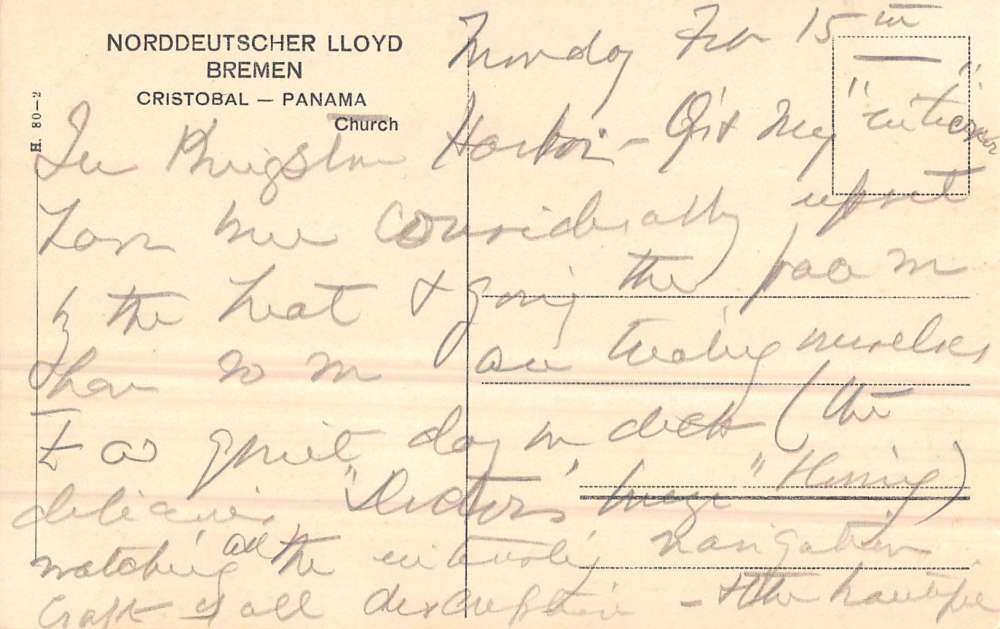 NORDDEUTSCHER LLOYD
BREMEN
CRISTOBAL — PANAMA
Church
H. 80—2
Monday Feb 15th
In Kingston Harbor - My "
have been considerably upset
by the heat & going the pace in
than so in are treating ourselves
to a quiet day on deck (the
delicious "Doctors" breeze "Hining)
watching all the navigation
craft of all description - & the